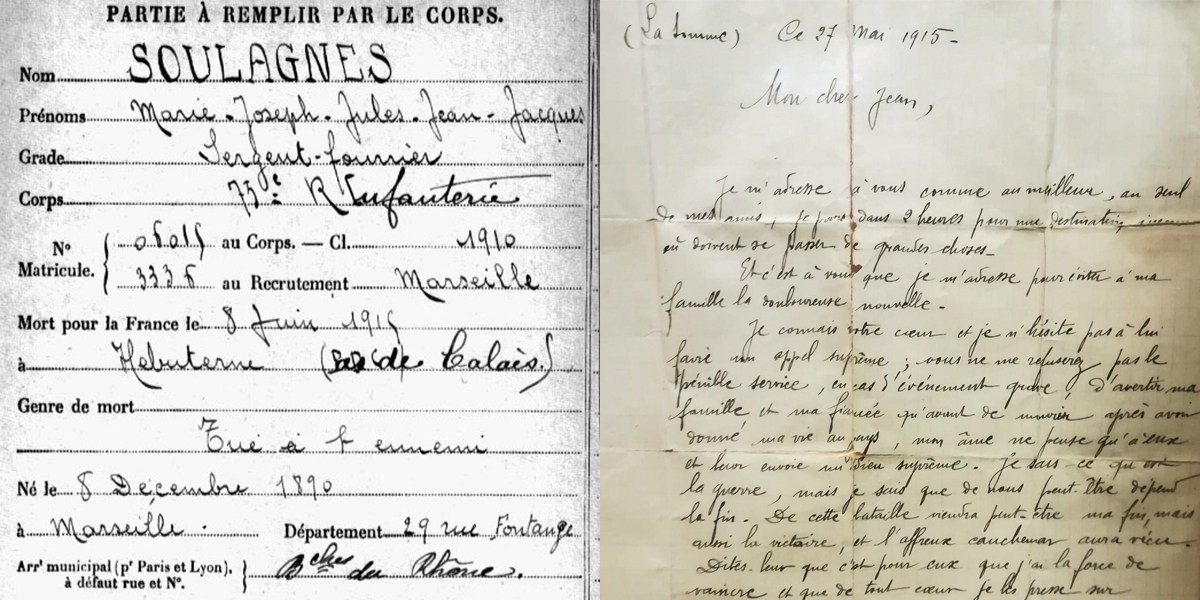 PARTIE À REMPLIR PAR LE CORPS.
Nom SOULAGNES
Prénoms Marie - Joseph - Jules - Jean - Jacques
Grade Sergent-fourrier
Corps 73e R Infanterie
No au Corps. — Cl. 1910
Matricule. 3336 au Recrutement Marseille
Mort pour la France le 8 Juin 1915
à Hebuterne (Pas de Calais.)
Genre de mort
Tué à l'ennemi
Né le 8 Décembre 1890
à Marseille. Département 29 rue Fontange
Arrt municipal (pr Paris et Lyon), à défaut rue et No. Bches du Rhône.
(La Somme) Ce 27 Mai 1915-
Mon cher Jean,
Je m'adresse à vous comme au meilleur, au seul
de mes amis, je pars dans 2 heures pour une destination
où doivent se passer de grandes choses-
Et c'est à vous que je m'adresse pour à ma
famille la douloureuse nouvelle-
Je connais votre cœur et je n'hésite pas à lui
faire un appel suprême; vous ne me refuserez pas le
pénible service, en cas d'événement grave, d'avertir ma
famille et ma fiancée qu'avant de mourir après avoir
donné ma vie au pays, mon âme ne pense qu'à eux
et leur envoie un adieu suprême. Je sais ce qu'est
la guerre, mais je sais que de nous peut-être dépend
la fin. De cette bataille viendra peut-être ma fin, mais
aussi la victoire, et l'affreux cauchemar aura vécu-
Dites-leur que c'est pour eux que j'ai la force de
vaincre et que de tout cœur je les presse sur